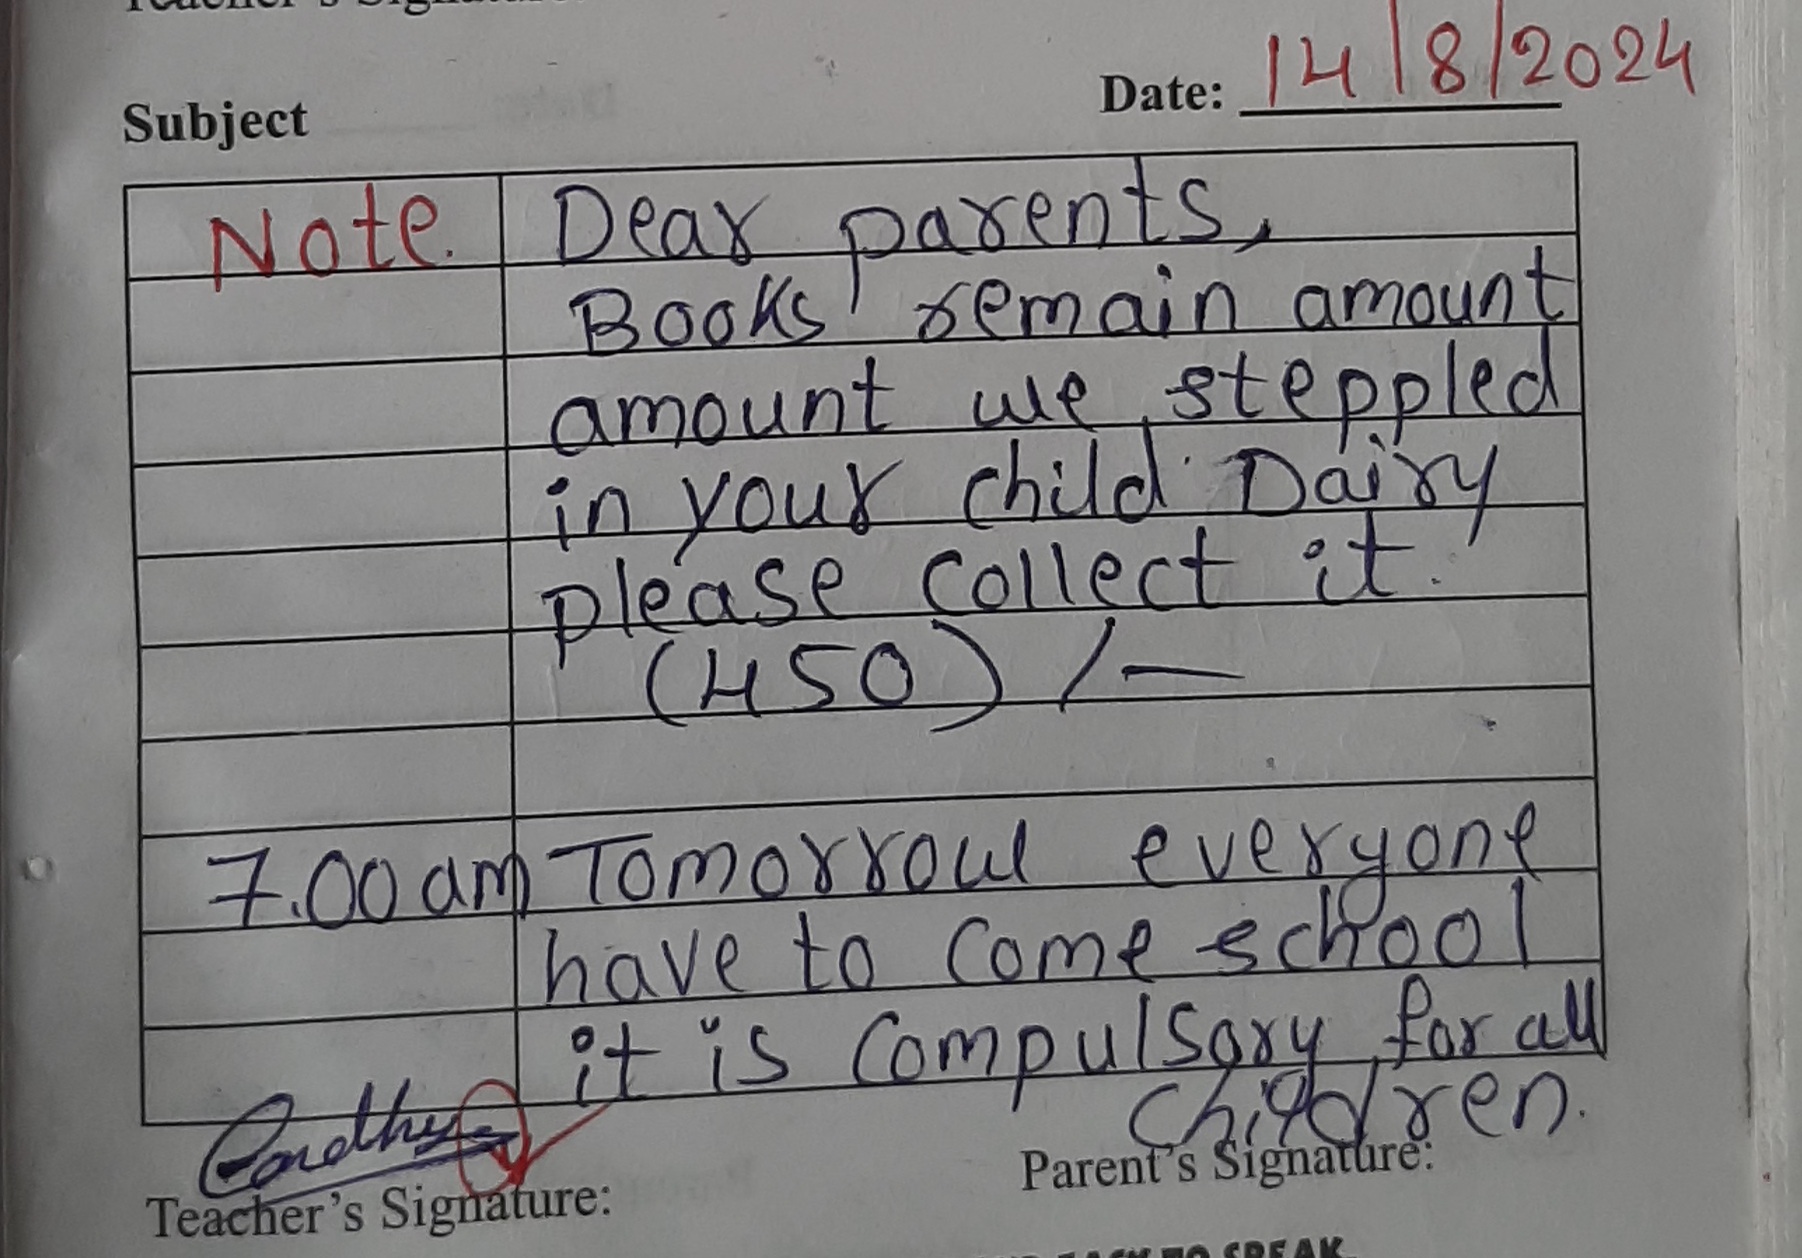 Date: 14/8/2024
Subject
Note. Dear parents,
Books remain amount
amount we steppled
in your child Dairy
please collect it.
(450) /-
7.00 am Tomorrow everyone
have to come school
it is compulsory for all
children.
Parent's Signature:
Teacher's Signature:
TO SPEAK